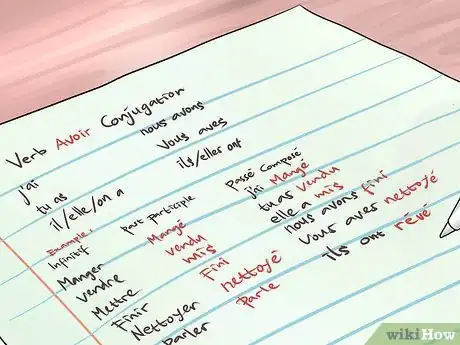 Verb Avoir Conjugation
j'ai nous avons
tu as Vous aves
il/elle/on a ils/eller ont
Example,
Infinitif past participle Passé Composé
Manger Mangé j'ai Mangé
vendre vendu tu as Vendu
Mettre mis elle a mis
Finir Fini nous avons fini
Nettoyer nettoyé Vous aver nettoyé
Parler Parle ils ont révé
wikiHow